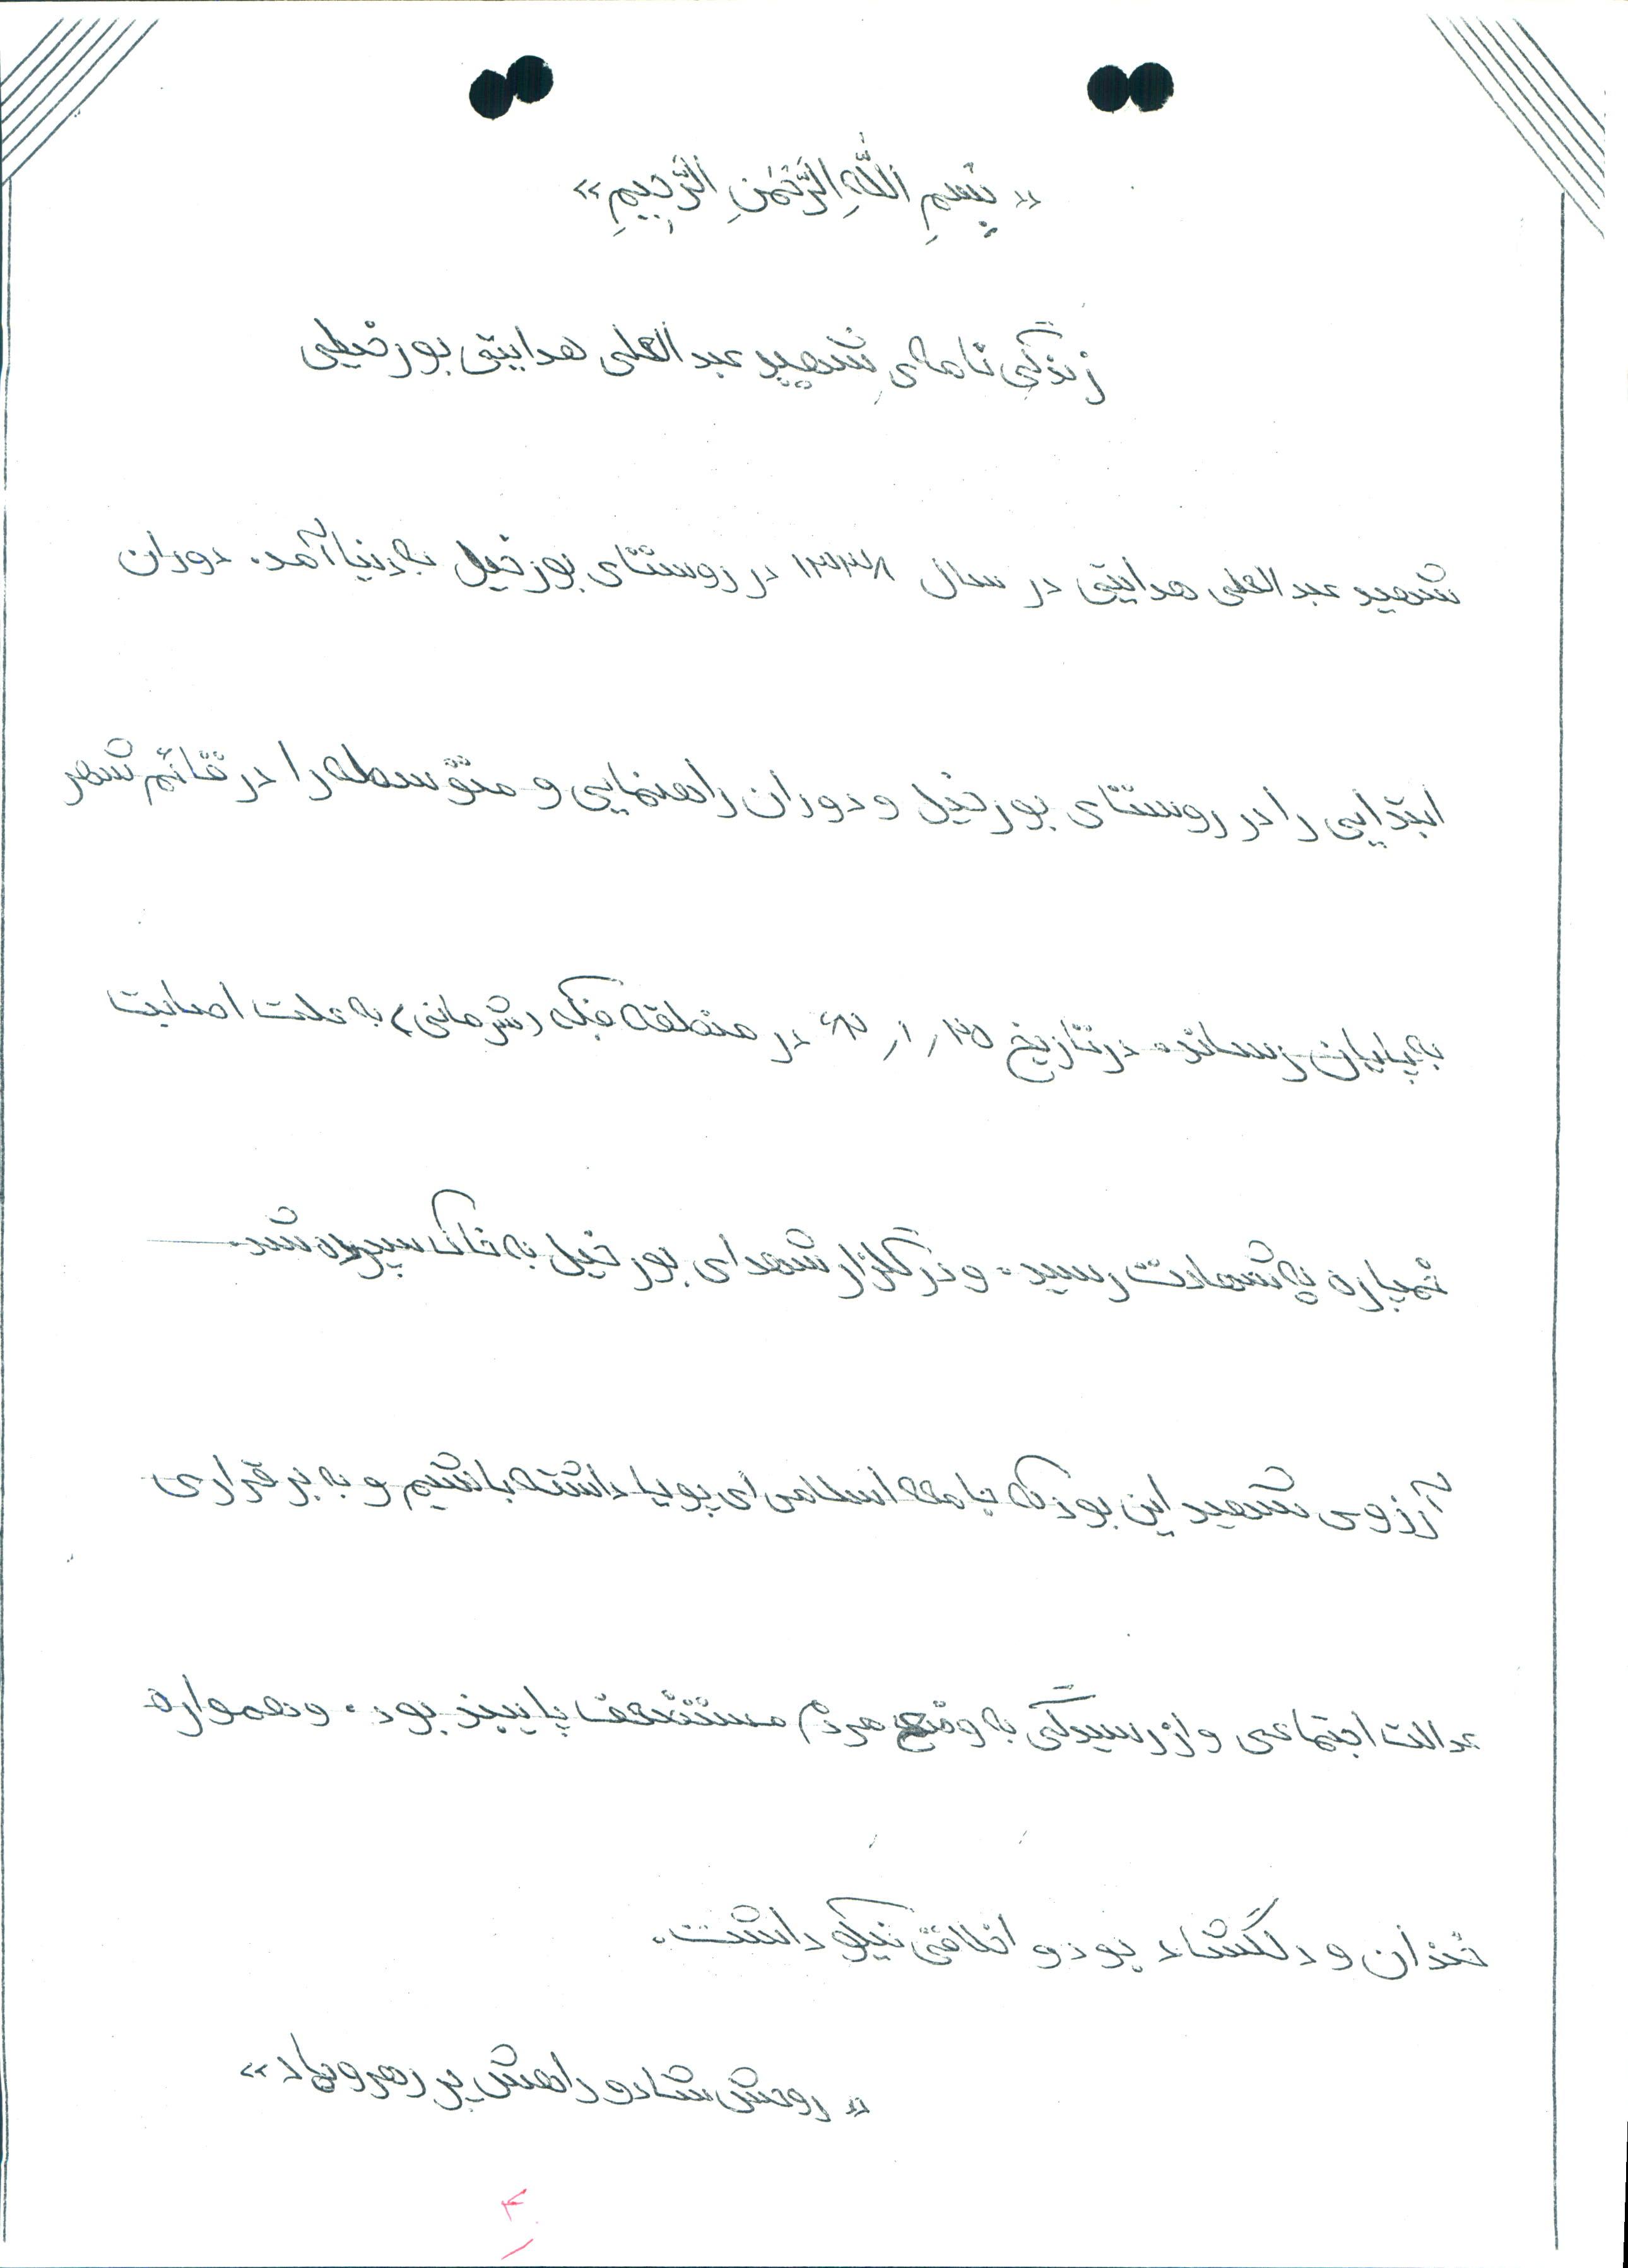 « بِسْمِ اللَّهِ الرَّحْمَنِ الرَّحِیمِ »
زندگی نامه‌ی شهید عبدالعلی هدایتی بورخیلی
شهید عبدالعلی هدایتی در سال ۱۳۳۸ در روستای بورخیل به دنیا آمد. دوران
ابتدایی را در روستای بورخیل و دوران راهنمایی و متوسطه را در قائم شهر
به پایان رساند. در تاریخ در منطقه فکه (شرهانی) به علت اصابت
خمپاره به شهادت رسید. و در گلزار شهدای بورخیل به خاک سپرده شد.
آرزوی شهید این بود که جامعه اسلامی ای پویا داشته باشیم و به برقراری
عدالت اجتماعی و از رسیدگی به وضع مردم مستضعف پایبند بود. و همواره
خندان و دلگشاد بود و اخلاقی نیکو داشت.
« روحش شاد و راهش پر رهرو باد »